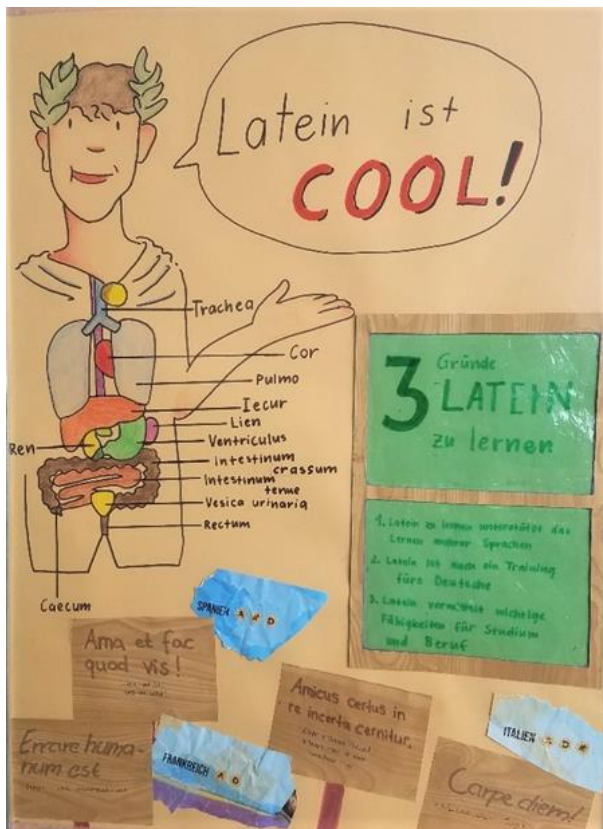 Latein ist
COOL!
Trachea
Cor
Pulmo
Iecur
Lien
Ren
Ventriculus
Intestinum
crassum
Intestinum
tenue
Vesica urinaria
Rectum
Caecum
3 Gründe
LATEIN
zu lernen
1. Latein zu lernen unterstützt das
Lernen anderer Sprachen
2. Latein ist auch ein Training
fürs Deutsche
3. Latein vermittelt wichtige
Fähigkeiten für Studium
und Beruf
SPANIEN
Ama et fac
quod vis!
Amicus certus in
re incerta cernitur.
ITALIEN
Errare huma-
num est
FRANKREICH
Carpe diem!